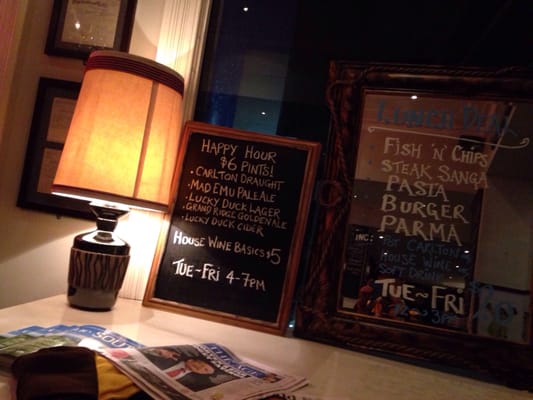 Happy Hour
$6 Pints!
• Carlton Draught
• Mad Emu Pale Ale
• Lucky Duck Lager
• Grand Ridge Golden Ale
• Lucky Duck Cider
House Wine Basics $5
Tue-Fri 4-7pm
Lunch
Fish 'n' Chips
Steak Sanga
Pasta
Burger
Parma
Pot Carlton
House Wine
Soft Drink
Tue-Fri